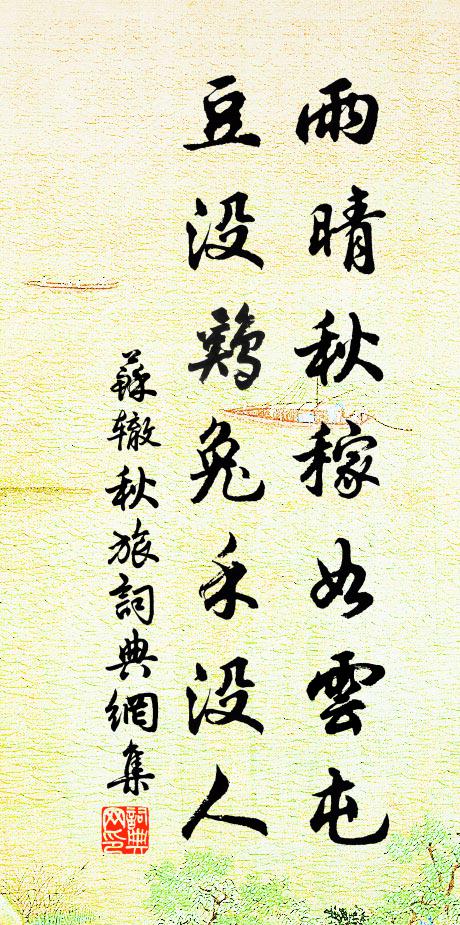 雨晴秋稼如雲屯
豆没鷄兔禾没人
蘇轍秋旅詞典網集
詞典网印